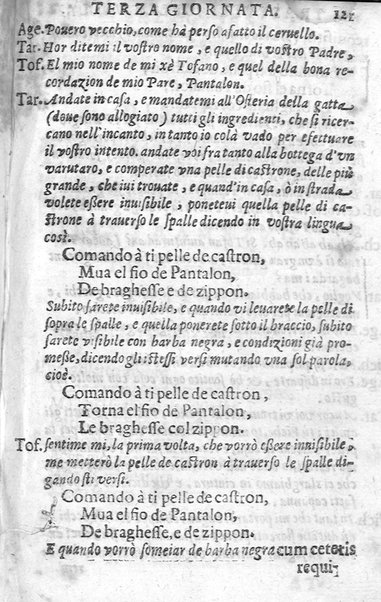 TERZA GIORNATA. 121
Age. Pouero vecchio, come hà perso afatto il ceruello.
Tar. Hor ditemi il vostro nome, e quello di vostro Padre,
Tof. El mio nome de mi xè Tofano, e quel della bona re-
cordazion de mio Pare, Pantalon.
Tar. Andate in casa, e mandatemi all'Osteria della gatta
(doue sono allogiato) tutti gli ingredienti, che si ricer-
cano nell'incanto, in tanto io colà vado per efectuare
il vostro intento. andate voi fra tanto alla bottega d'vn
varutaro, e comperate vna pelle di castrone, delle più
grande, che iui trouate, e quand'in casa, ò in strada
volete eßere inuisibile, poneteui quella pelle di ca-
strone à trauerso le spalle dicendo in vostra lingua
così.
Comando à ti pelle de castron,
Mua el fio de Pantalon,
De braghesse e de zippon.
Subito sarete inuisibile, e quando vi leuarete la pelle di
sopra le spalle, e quella ponerete sotto il braccio, subito
sarete visibile con barba negra, e condizioni già pro-
meße, dicendo gli istessi versi mutando vna sol parola,
cioè.
Comando à ti pelle de castron,
Torna el fio de Pantalon,
Le braghesse col zippon.
Tof. sentime mi, la prima volta, che vorrò eßere inuisibile,
me metterò la pelle de castron à trauerso le spalle di-
gando sti versi.
Comando à ti pelle de castron,
Mua el fio de Pantalon,
De braghesse, e de zippon.
E quando vorrò someiar de barba negra cum ceteris
requi;